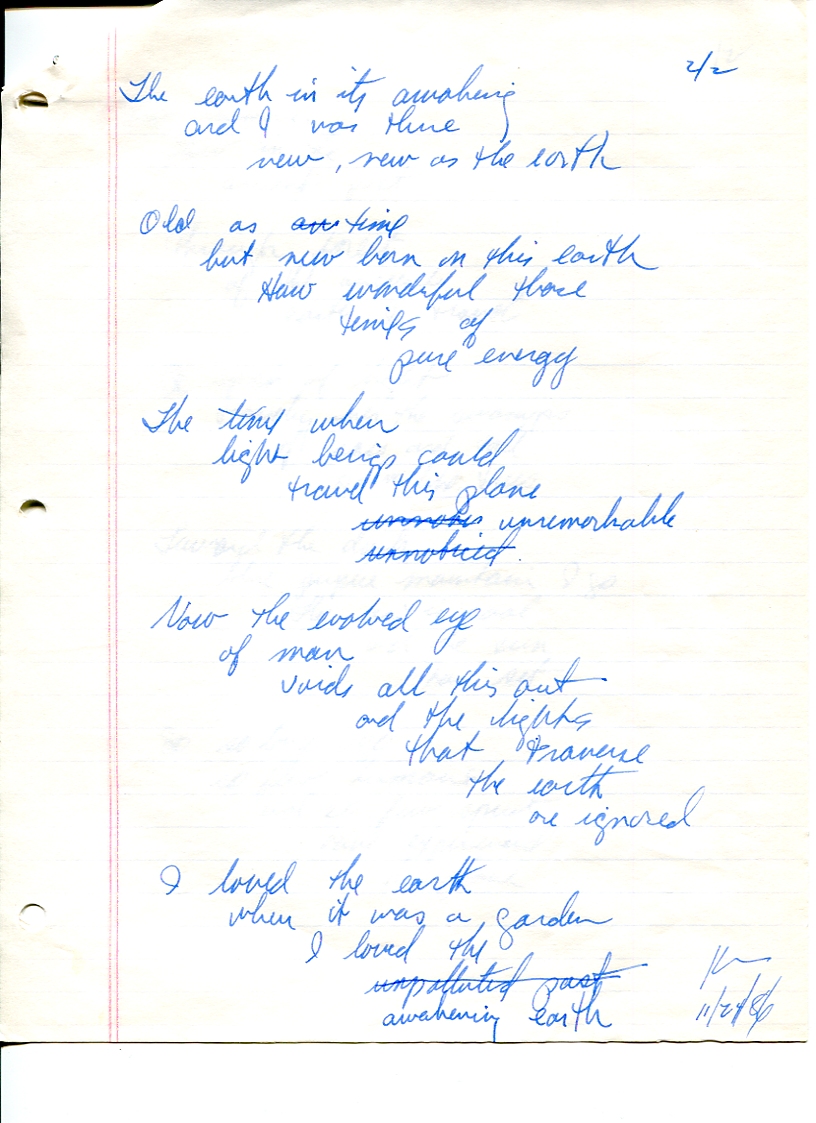 2/2
The earth in its awaking
and I was there
new, new as the earth
Old as an time
but new born on this earth
How wonderful those
times of
pure energy
The time when
light beings could
travel this plane
unremarkable
unnoticed.
Now the evolved eye
of man
voids all this out
and the lights
that traverse
the earth
are ignored
I loved the earth
when it was a garden
I loved the
unpolluted past
awakening earth
11/24/86